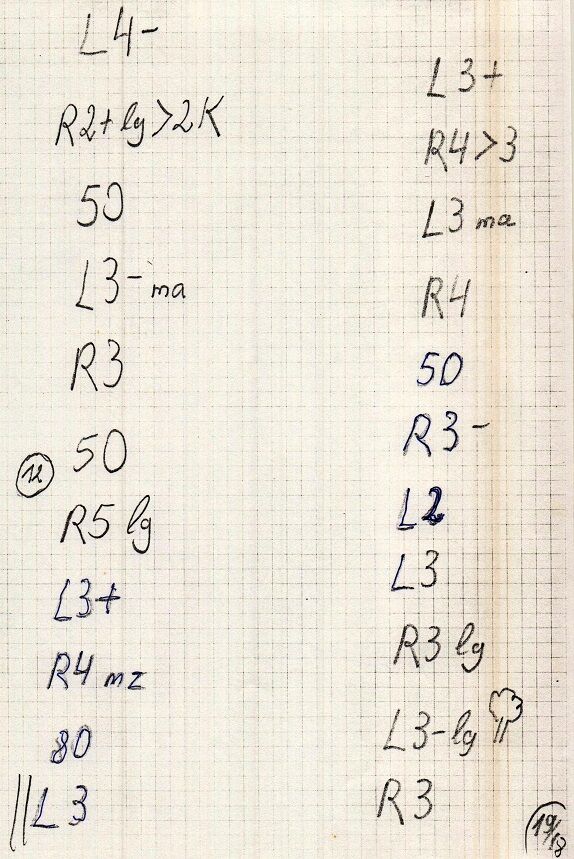 L4-
R2+ lg>2K
50
L3- ma
R3
50
12
R5 lg
L3+
R4 mz
80
L3
L3+
R4>3
L3 ma
R4
50
R3-
L2
L3
R3 lg
L3- lg
R3
19/18